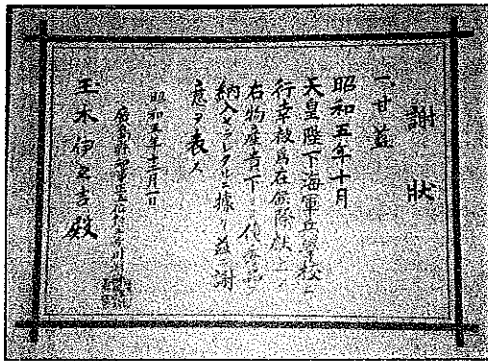 謝狀
一甘藍
昭和五年十月
天皇陛下海軍兵學校ニ
行幸被為在 際獻上ノ
右物産
納入セラレタルニ據リ茲謝
意ヲ表ス
昭和五年十二月一日
廣島縣
玉木伊之吉殿